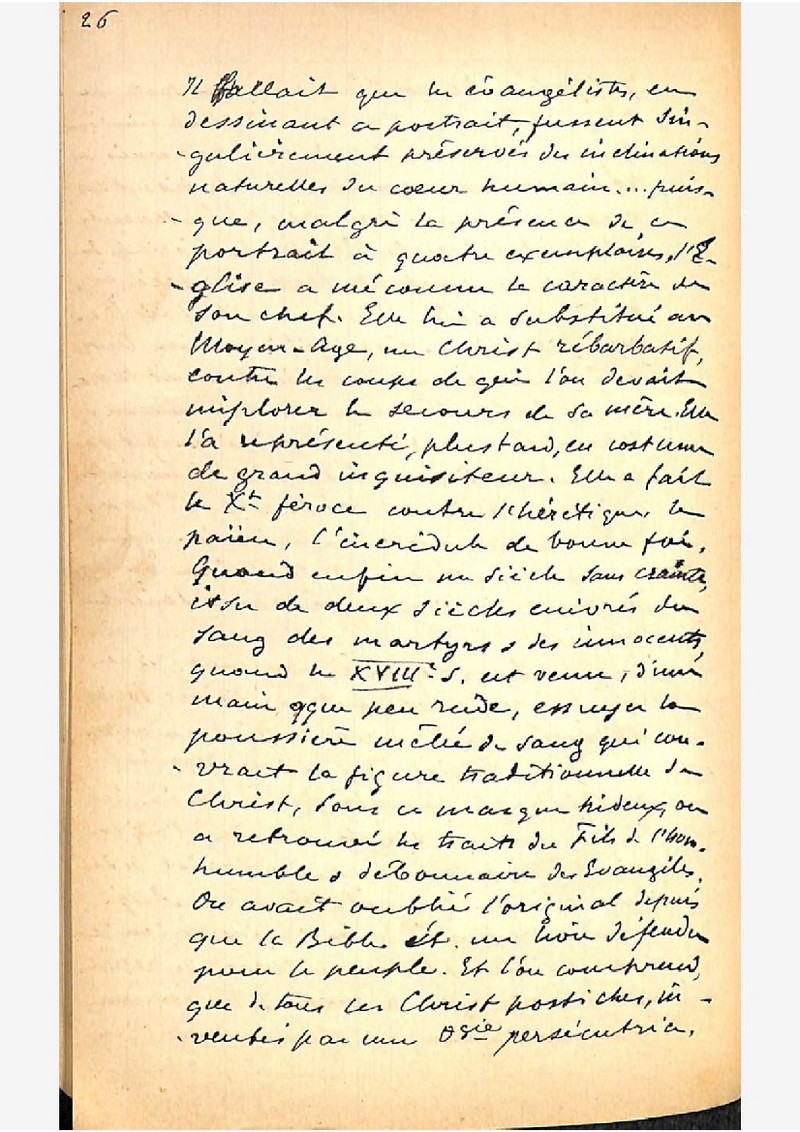 26
Il fallait que les évangélistes, en
dessinant ce portrait, fussent sin-
gulièrement préservés des inclinations
naturelles du cœur humain... puis-
que, malgré la présence de ce
portrait à quatre exemplaires, l'É-
glise a méconnu le caractère de
son chef. Elle lui a substitué au
Moyen-Age, un Christ rébarbatif,
contre les coups de qui l'on devait
implorer le secours de sa mère. Elle
l'a représenté, plus tard, en costume
de grand inquisiteur. Elle a fait
le Xt féroce contre l'hérétique, le
païen, l'incrédule de bonne foi.
Quand enfin un siècle sans crainte,
issu de deux siècles enivrés du
sang des martyrs & des innocents,
quand le XVIIIe S. est venu, d'une
main qque peu rude, essuyer la
poussière mêlée de sang qui cou-
vrait la figure traditionnelle du
Christ, sous ce masque hideux, on
a retrouvé les traits du Fils de l'hom.
humble & débonnaire des Evangiles.
On avait oublié l'original depuis
que la Bible ét. un livre défendu
pour le peuple. Et l'on comprend,
que de tous ces Christ postiches, in-
ventés par une persécutrice,